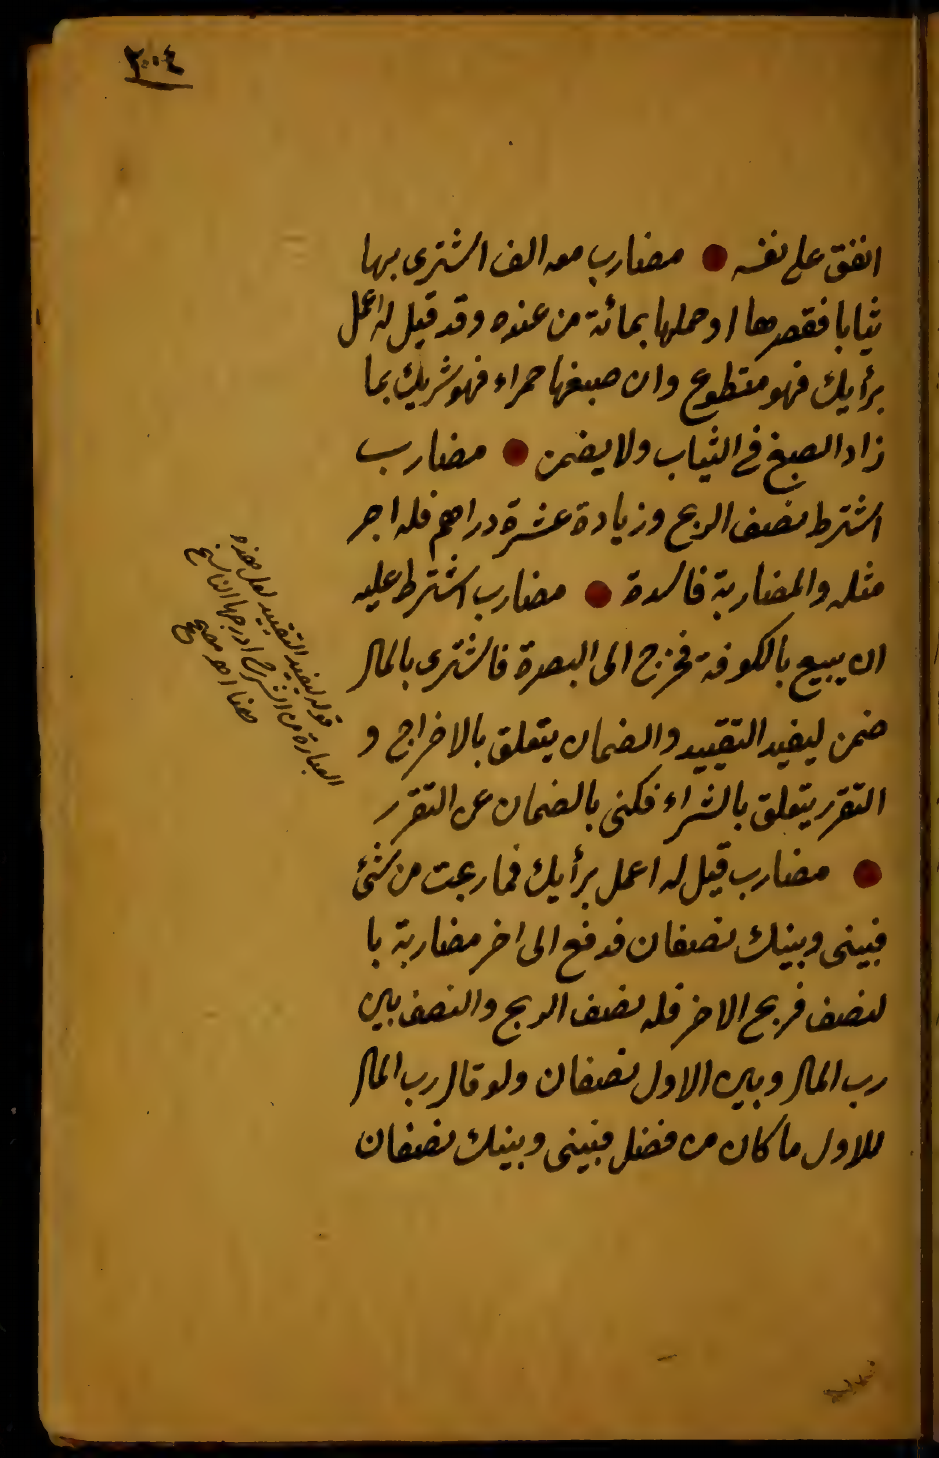 ٢٠٠٤
انفق على نفسه ● مضارب معه الف اشترى بها
ثيابا فقصرها او حملها بمائة من عنده وقد قيل له اعمل
برأيك فهو متطوع وان صبغها حمراء فهو شريك بما
زاد الصبغ في الثياب ولا يضمن ● مضارب
اشترط نصف الربح وزيادة عشرة دراهم فله اجر
مثله والمضاربة فاسدة ● مضارب اشترط عليه
ان يبيع بالكوفة فخرج الى البصرة فاشترى بالمال
ضمن ليفيد التقييد والضمان يتعلق بالاخراج و
التقرر يتعلق بالشراء فكنى بالضمان عن التقرر
● مضارب قيل له اعمل برأيك فما ربحت من شئ
فبينى وبينك نصفان فدفع الى اخر مضاربة با
لنصف فربح الاخر فله نصف الربح والنصف بين
رب المال وبين الاول نصفان ولو قال رب المال
للاول ما كان من فضل فبينى وبينك نصفان
قوله ليفيد التقييد لعل هذه
العبارة من الشرح ادرجها الناسخ
هنا اهو مصحح